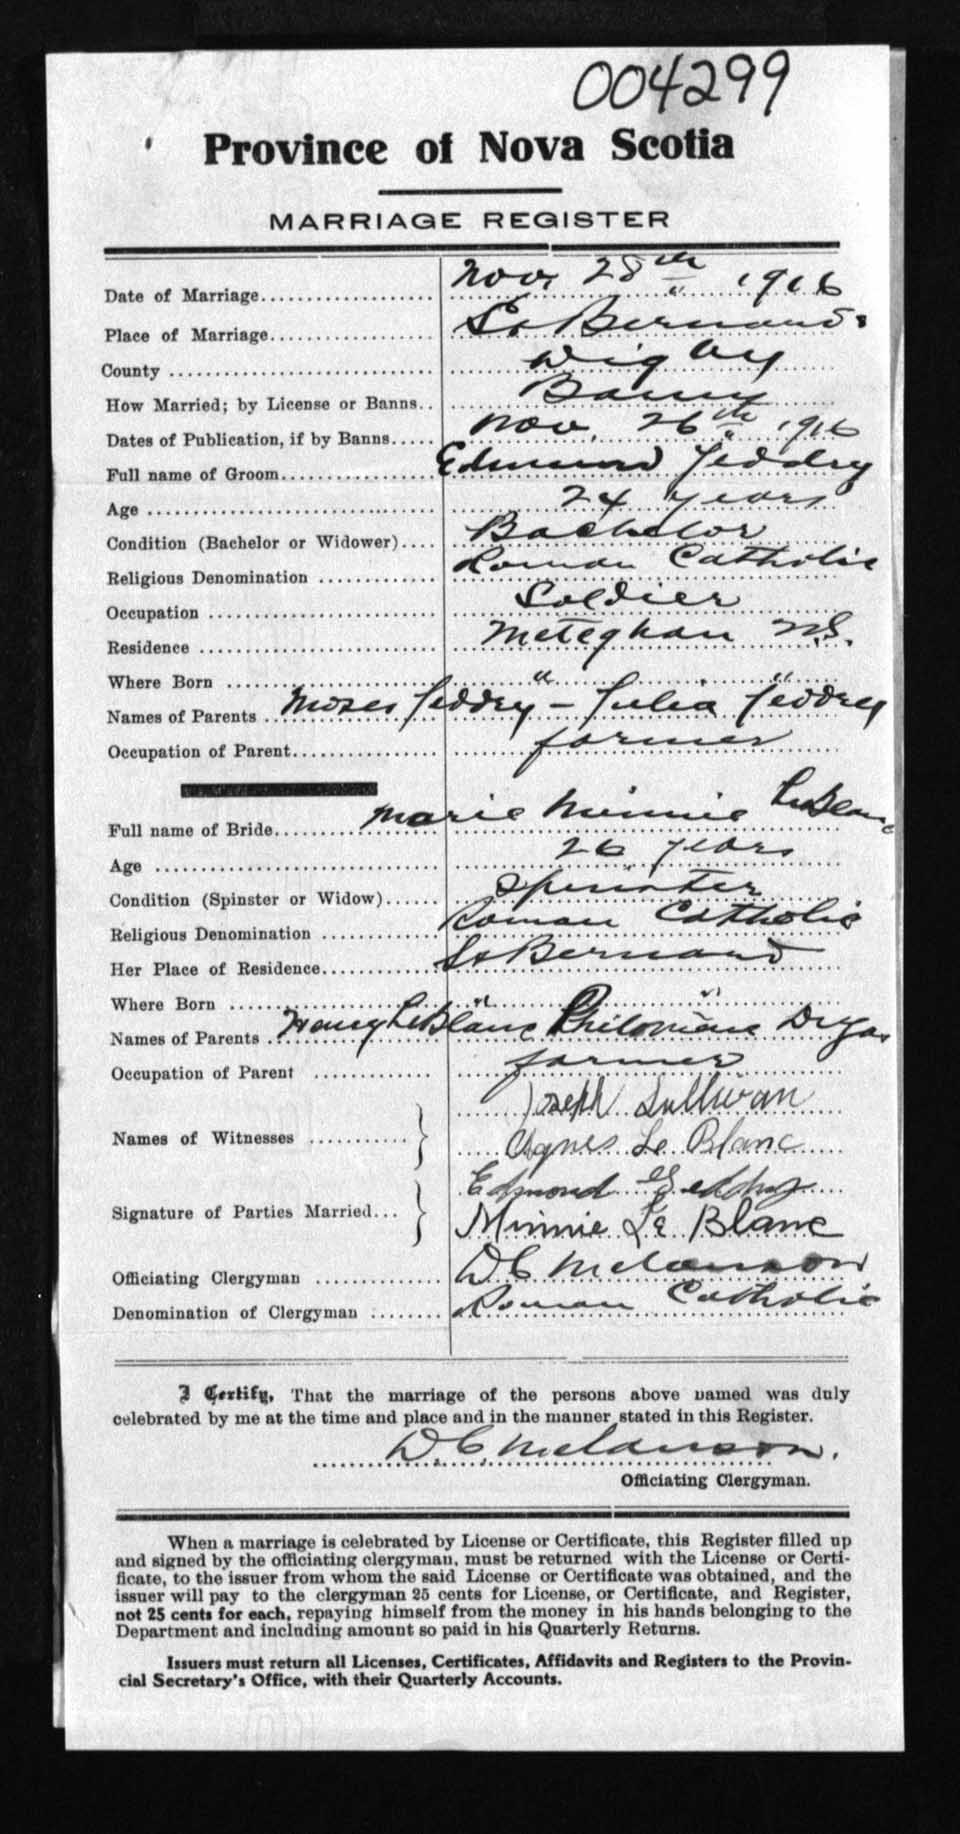 004299
Province of Nova Scotia
MARRIAGE REGISTER
Date of Marriage.................... Nov. 28th " 1916
Place of Marriage................... St Bernard.
County .............................. Digby
How Married; by License or Banns.. Banns
Dates of Publication, if by Banns..... Nov. 26th " 1916
Full name of Groom.................. Edmund Jeddry
Age .................................. 24 years
Condition (Bachelor or Widower).... Bachelor
Religious Denomination ............. Roman Catholic
Occupation .......................... Soldier
Residence ........................... Meteghan N.S.
Where Born ........................ " "
Names of Parents .. Moses Jeddry – Julia Jeddry
Occupation of Parent................ farmer
Full name of Bride........ Marie Minnie LeBlanc
Age ................................. 26 years
Condition (Spinster or Widow)...... Spinster
Religious Denomination ............. Roman Catholic
Her Place of Residence............. St Bernard
Where Born ........................ " "
Names of Parents .. Henry LeBlanc Philomène Dugas
Occupation of Parent .............. farmer
Joseph Sullivan
Names of Witnesses ........... }
Agnes Le Blanc
Edmond Geddry
Signature of Parties Married... }
Minnie Le Blanc
Officiating Clergyman .............. D C Melanson
Denomination of Clergyman ........ Roman Catholic
I Certify, That the marriage of the persons above named was duly
celebrated by me at the time and place and in the manner stated in this Register.
D. C. Melanson.
Officiating Clergyman.
When a marriage is celebrated by License or Certificate, this Register filled up
and signed by the officiating clergyman, must be returned with the License or Certi-
ficate, to the issuer from whom the said License or Certificate was obtained, and the
issuer will pay to the clergyman 25 cents for License, or Certificate, and Register,
not 25 cents for each, repaying himself from the money in his hands belonging to the
Department and including amount so paid in his Quarterly Returns.
Issuers must return all Licenses, Certificates, Affidavits and Registers to the Provin-
cial Secretary's Office, with their Quarterly Accounts.